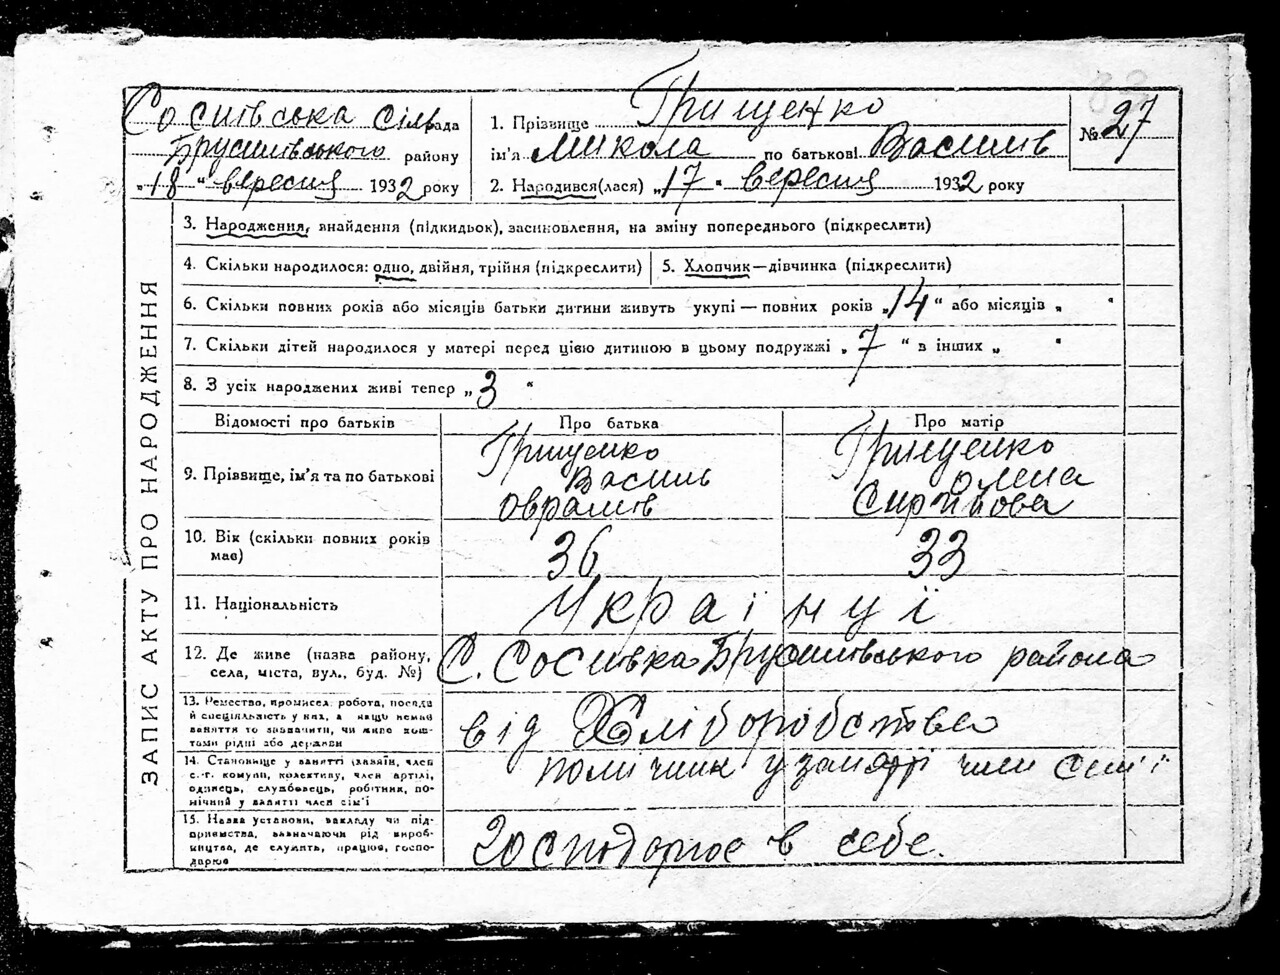 83
Соснівська сільрада
Брусилівського району
„18“ вересня 1932 року
1. Прізвище Грищенко
ім'я Микола по батькові Василів
2. Народився(лася) „17“ вересня 1932 року
№ 27
ЗАПИС АКТУ ПРО НАРОДЖЕННЯ
3. Народження, знайдення (підкидьок), засиновлення, на зміну попереднього (підкреслити)
4. Скільки народилося: одно, двійня, трійня (підкреслити) 5. Хлопчик—дівчинка (підкреслити)
6. Скільки повних років або місяців батьки дитини живуть укупі — повних років „14“ або місяців „ “
7. Скільки дітей народилося у матері перед цією дитиною в цьому подружжі „7“ в інших „ “
8. З усіх народжених живі тепер „3“
Відомості про батьків Про батька Про матір
9. Прізвище, ім'я та по батькові
Грищенко
Василь
Оврамів
Грищенко
Олена
10. Вік (скільки повних років має)
36
33
11. Національність
Українці
12. Де живе (назва району,
села, міста, вул., буд. №)
С. Соснівка Брусилівського района
13. Ремество, промисел, робота, посада
й спеціяльність у них, а якщо немає
заняття то зазначити, чи живе кош-
тами рідні або держави
від Хліборобства
14. Становище у занятті (хазяїн, член
с.-г. комуни, колективу, член артілі,
одинець, службовець, робітник, по-
мічний у занятті член сім'ї
помічник у занятті член сімї
15. Назва установи, закладу чи під-
приємства, зазначаючи рід вироб-
ництва, де служить, працює, госпо-
дарює
Господарює в себе.